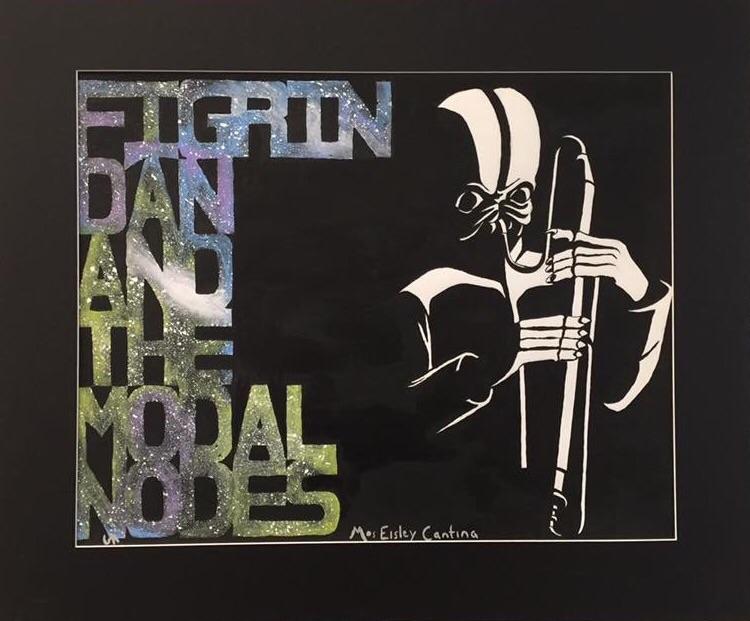 FIGRIN
DAN
AND
THE
MODAL
NODES
Mos Eisley Cantina